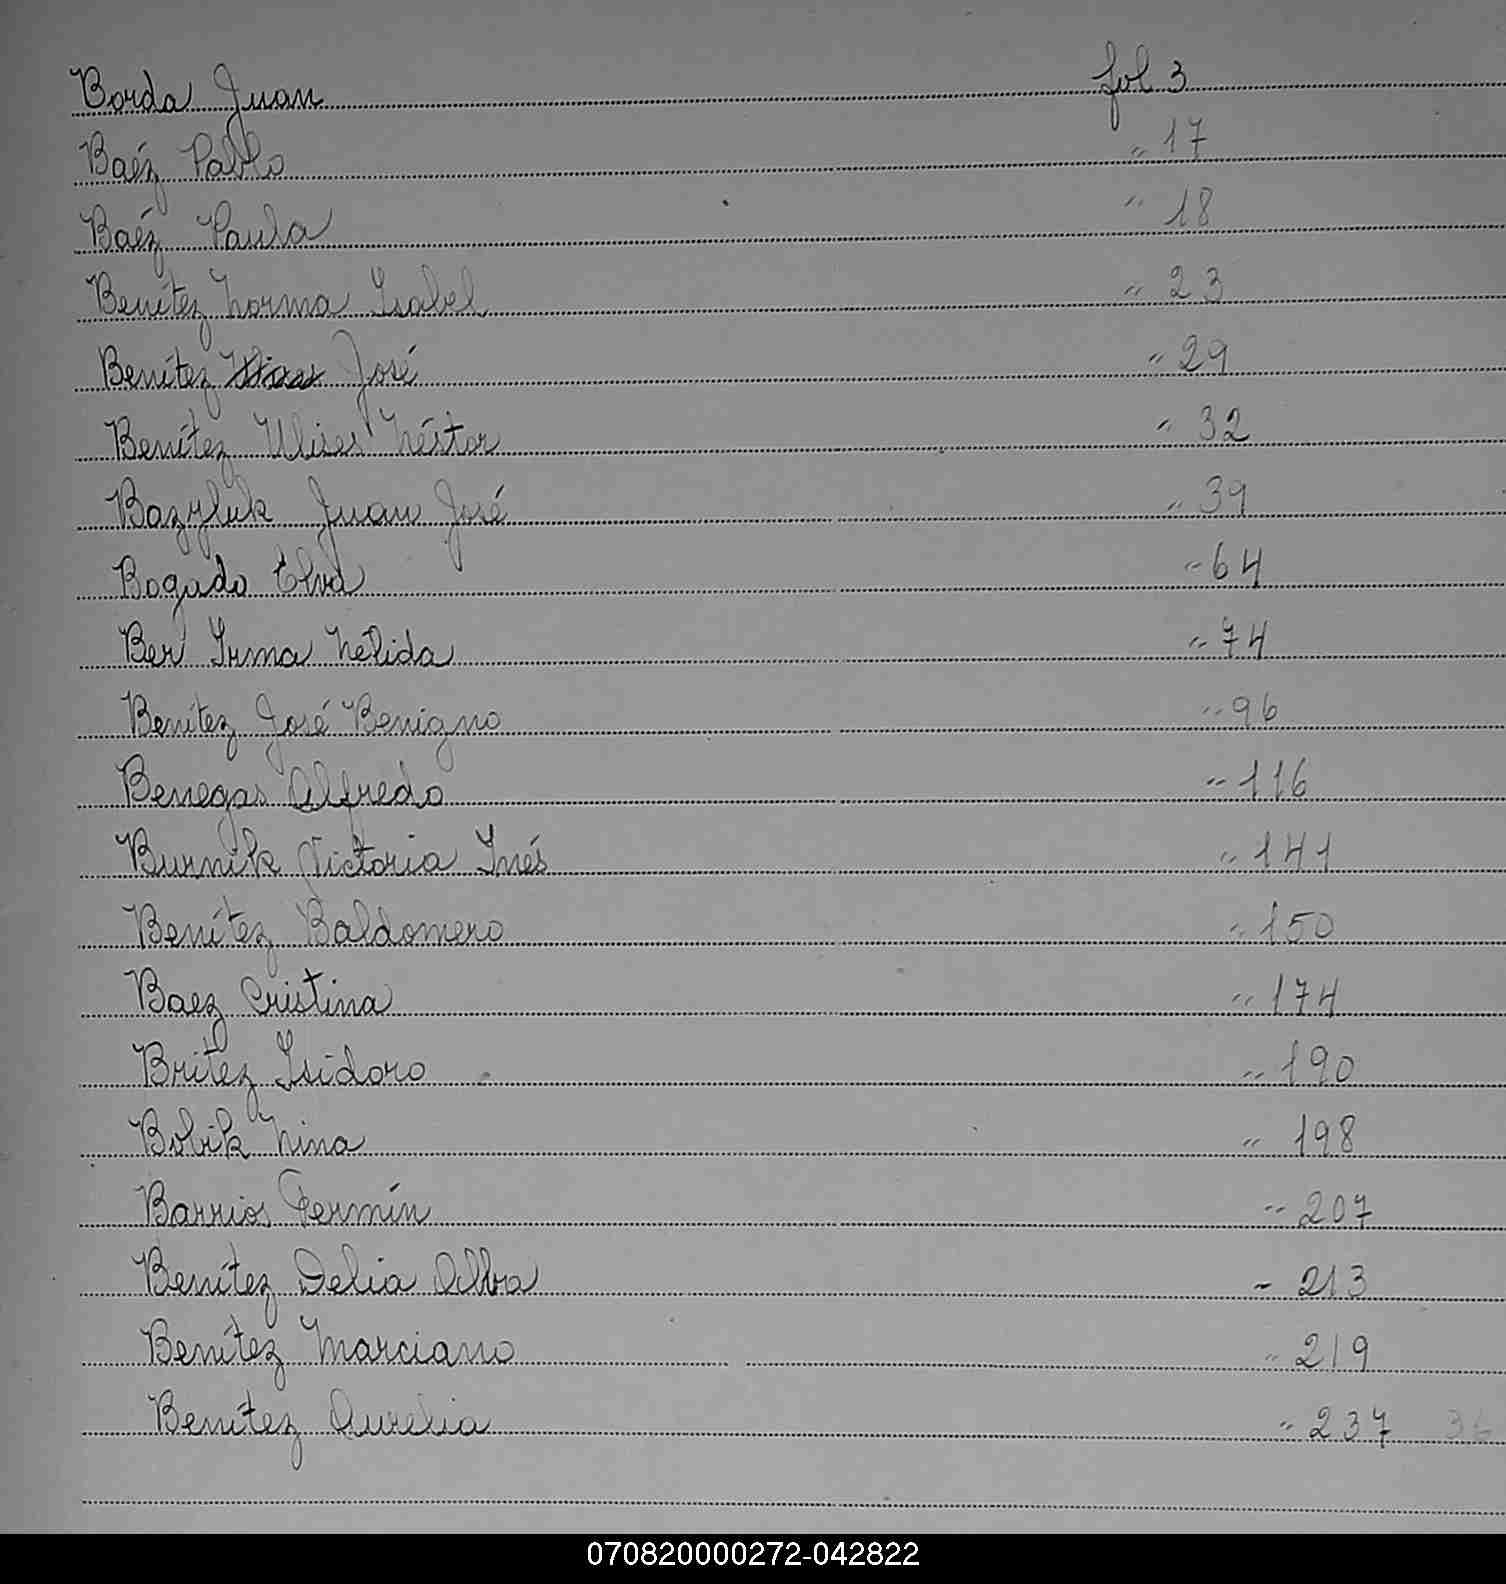 Borda Juan fol 3
Baéz Pablo " 17
Baéz Paula " 18
Benítez Norma Isabel " 23
Benítez José " 29
Benítez Ulises Néstor " 32
Bazyluk Juan José " 39
Bogado Elva " 64
Ber Irma Nélida " 74
Benítez José Benigno " 96
Benegas Alfredo " 116
Burnik Victoria Inés " 141
Benítez Baldomero " 150
Baez Cristina " 174
Britez Isidoro " 190
Bobik Nina " 198
Barrios Fermín " 207
Benítez Delia Alba " 213
Benítez Marciano " 219
Benítez Aurelia " 237
070820000272-042822